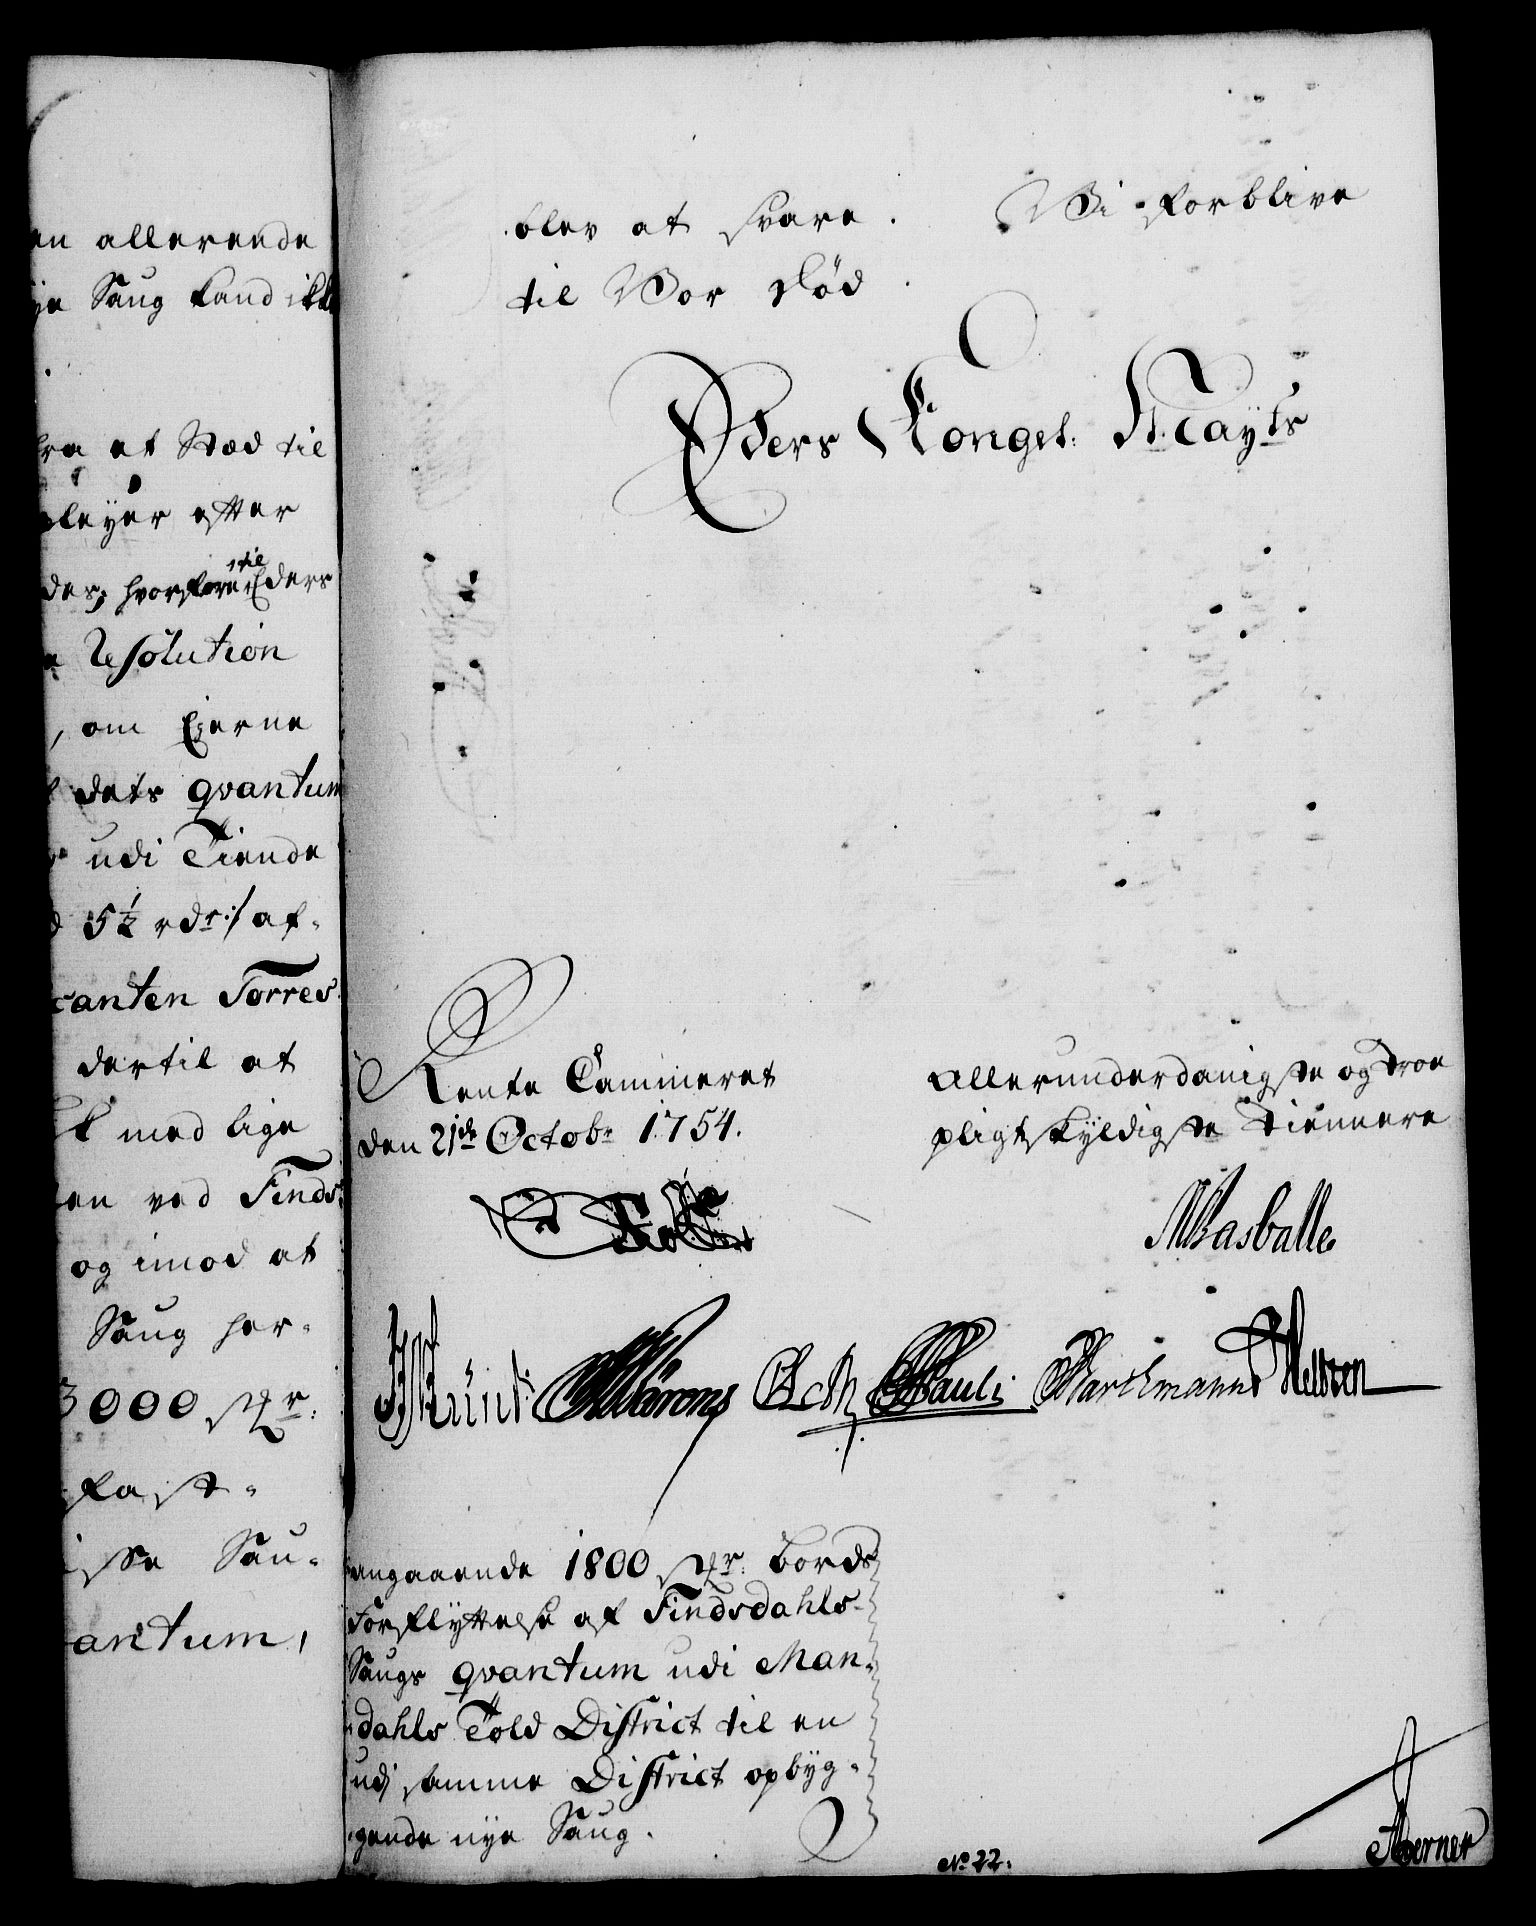 en allerende
ye Saug kand ikke
fra et Stæd til
pleyer efter
til
des; hvorfore Eders
Resolution
, om Eierne
dets qvantum
udi Tiende
5½ rdr:/ af-
canten Torres
dertil at
med lige
en ved Finds-
og imod at
Saug her-
3000 st&r:
fast-
isse Sau-
antum,
blev at svare. Vi forblive
til Vor død.
Eders Kongel: Mayts
Rente Cammeret
den 21de Octobr 1754.
Allerunderdanigste og troe
pligtskyldigste Tiennere
Basballe
Pauli Bartelmann
angaaende 1800 st&r: bords
Forflyttelse af Findsdahls-
Saugs qvantum udi Man-
dahls Told District til en
udj samme District opbyg-
gende nye Saug.
No 22.